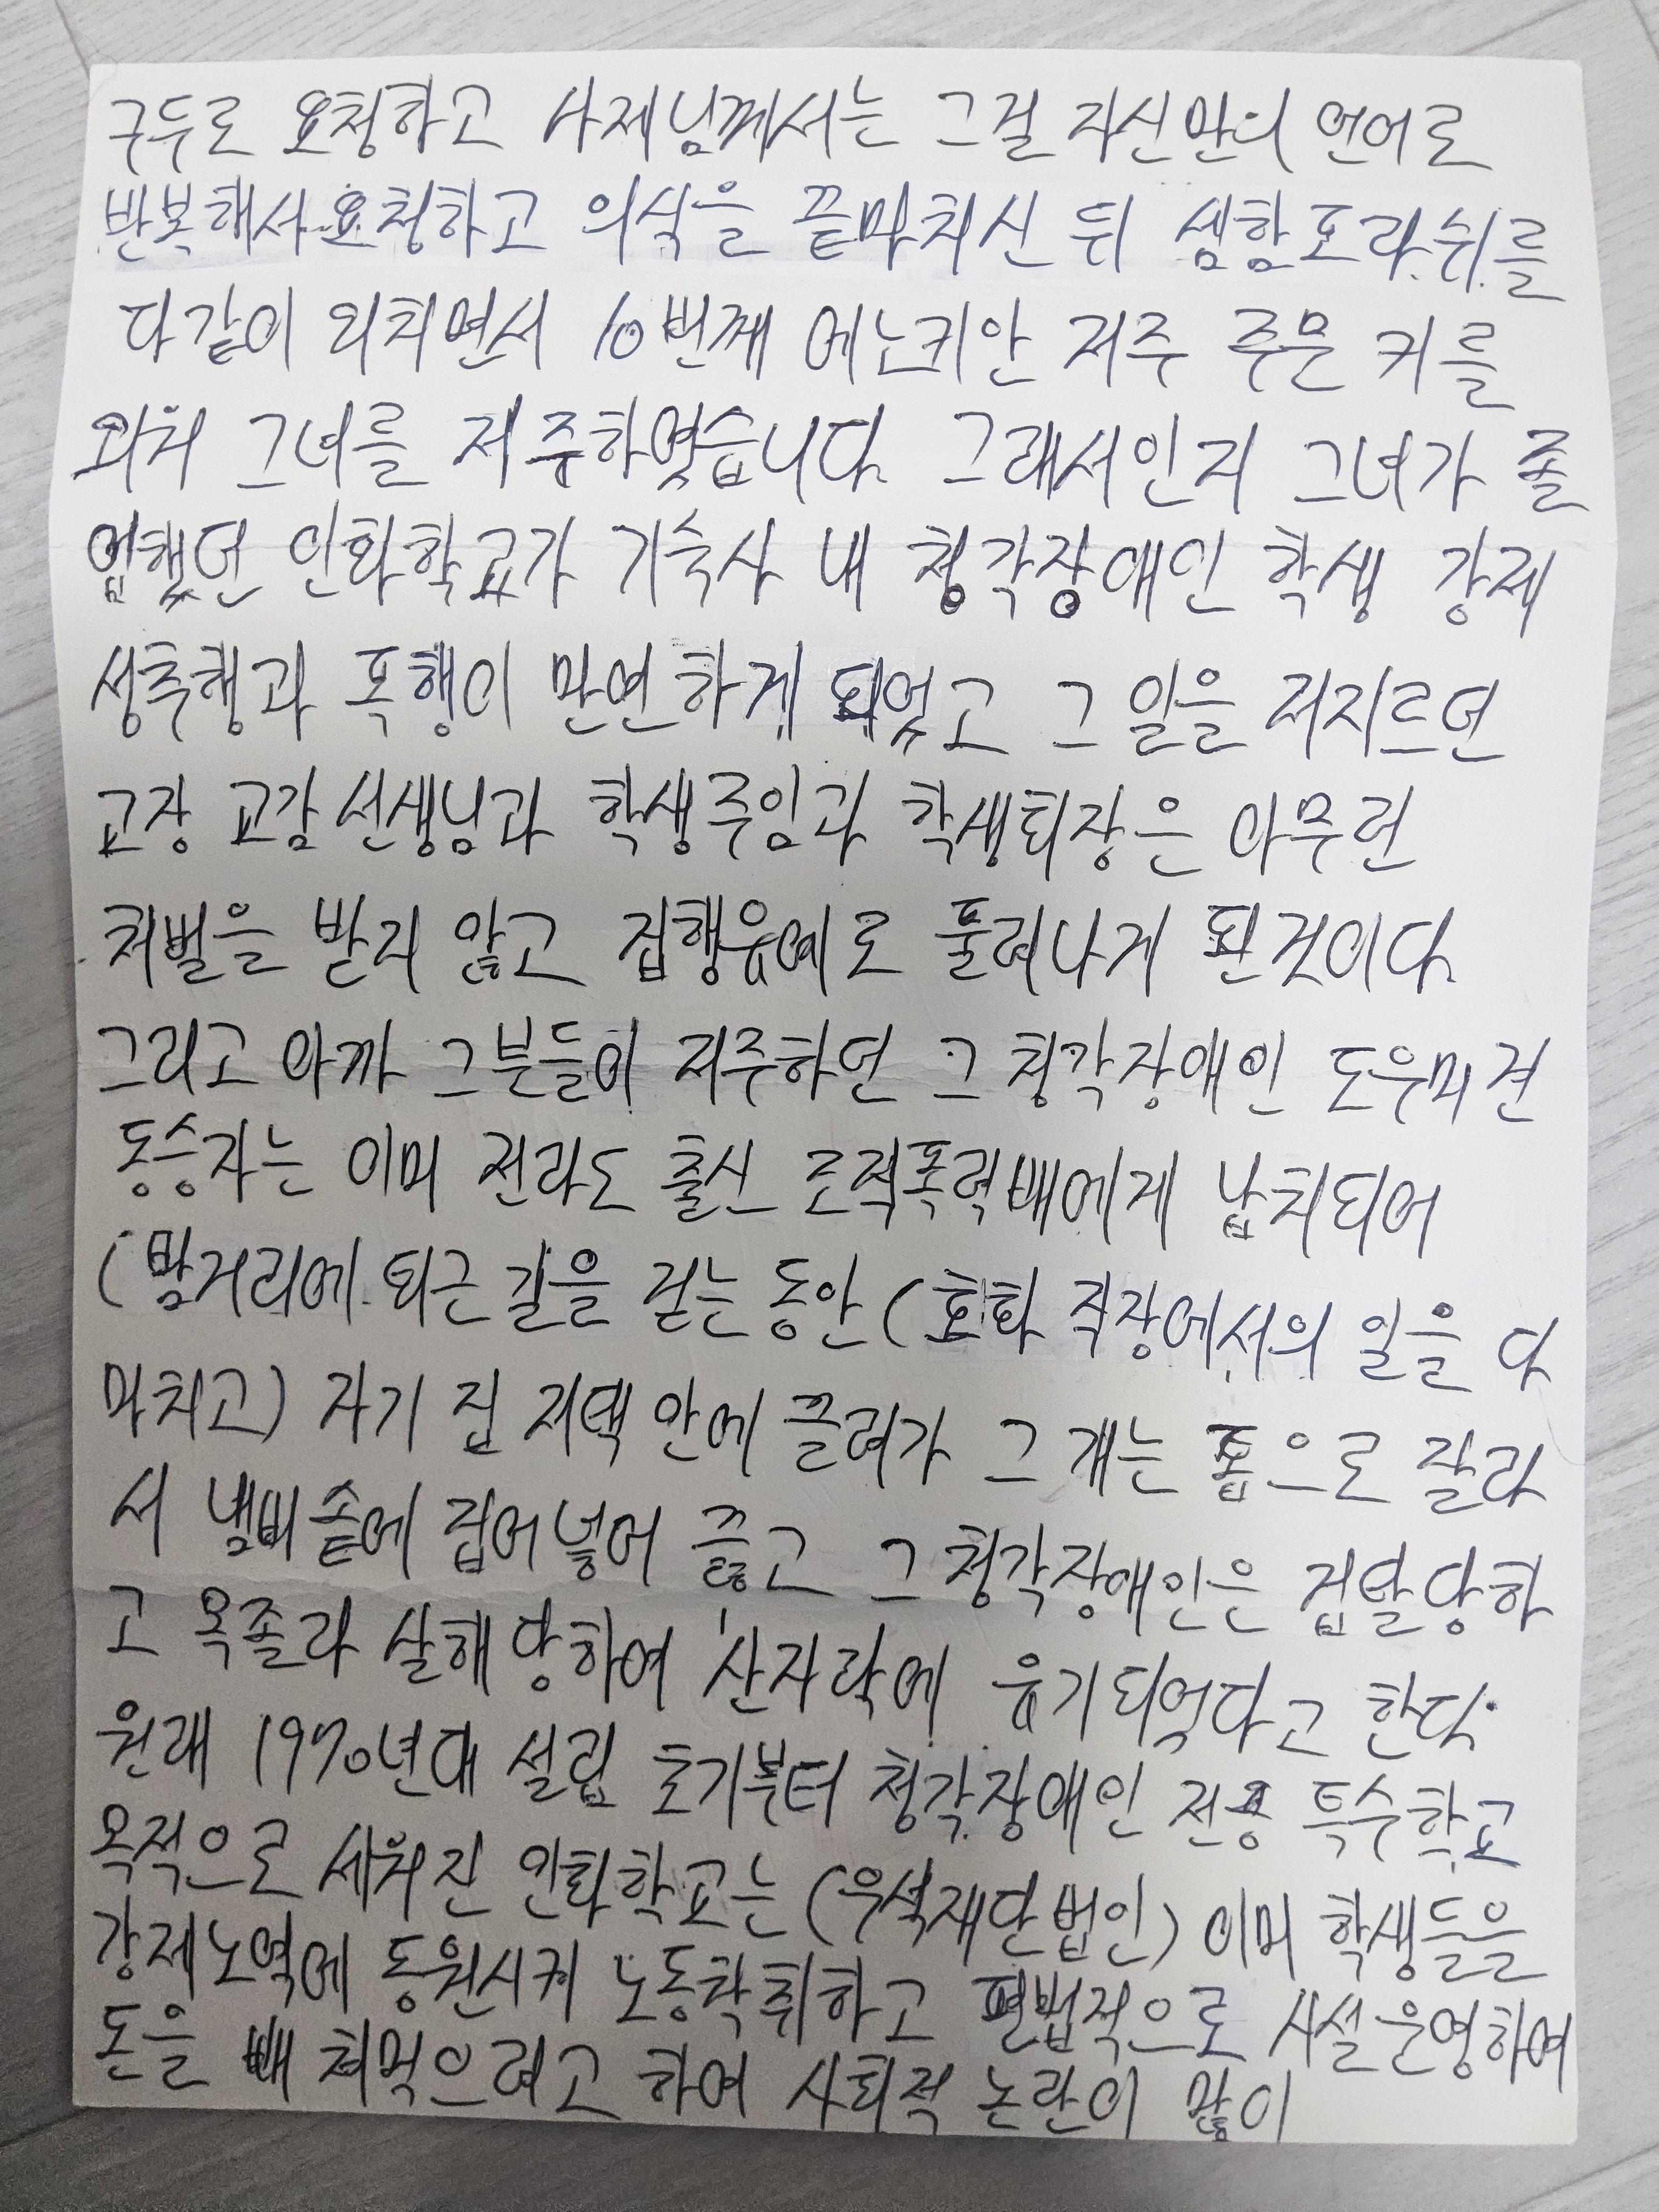 구두로 요청하고 사제님께서는 그걸 자신만의 언어로
반복해서 요청하고 의식을 끝마치신 뒤 셈함포라쉬를
다같이 외치면서 10번째 에노키안 저주 주문 키를
외쳐 그녀를 저주하였습니다. 그래서인지 그녀가 졸
업했던 인화학교가 기숙사 내 청각장애인 학생 강제
성추행과 폭행이 만연하게 되었고 그 일을 저지르던
교장 교감 선생님과 학생주임과 학생회장은 아무런
처벌을 받지 않고 집행유예로 풀려나게 된것이다.
그리고 아까 그분들이 저주하던 그 청각장애인 도우미견
동승자는 이미 전라도 출신 조직폭력배에게 납치되어
(밤거리에 퇴근길을 걷는 동안 (회화 직장에서의 일을 다
마치고) 자기 집 저택 안에 끌려가 그 개는 톱으로 잘라
서 냄비솥에 집어넣어 끓고 그 청각장애인은 겁탈당하
고 목졸라 살해 당하여 산자락에 유기되었다고 한다.
원래 1970년대 설립 초기부터 청각장애인 전용 특수학교
목적으로 세워진 인화학교는 (우석재단법인) 이미 학생들을
강제노역에 동원시켜 노동착취하고 편법적으로 시설운영하여
돈을 빼 쳐먹으려고 하여 사회적 논란이 많이